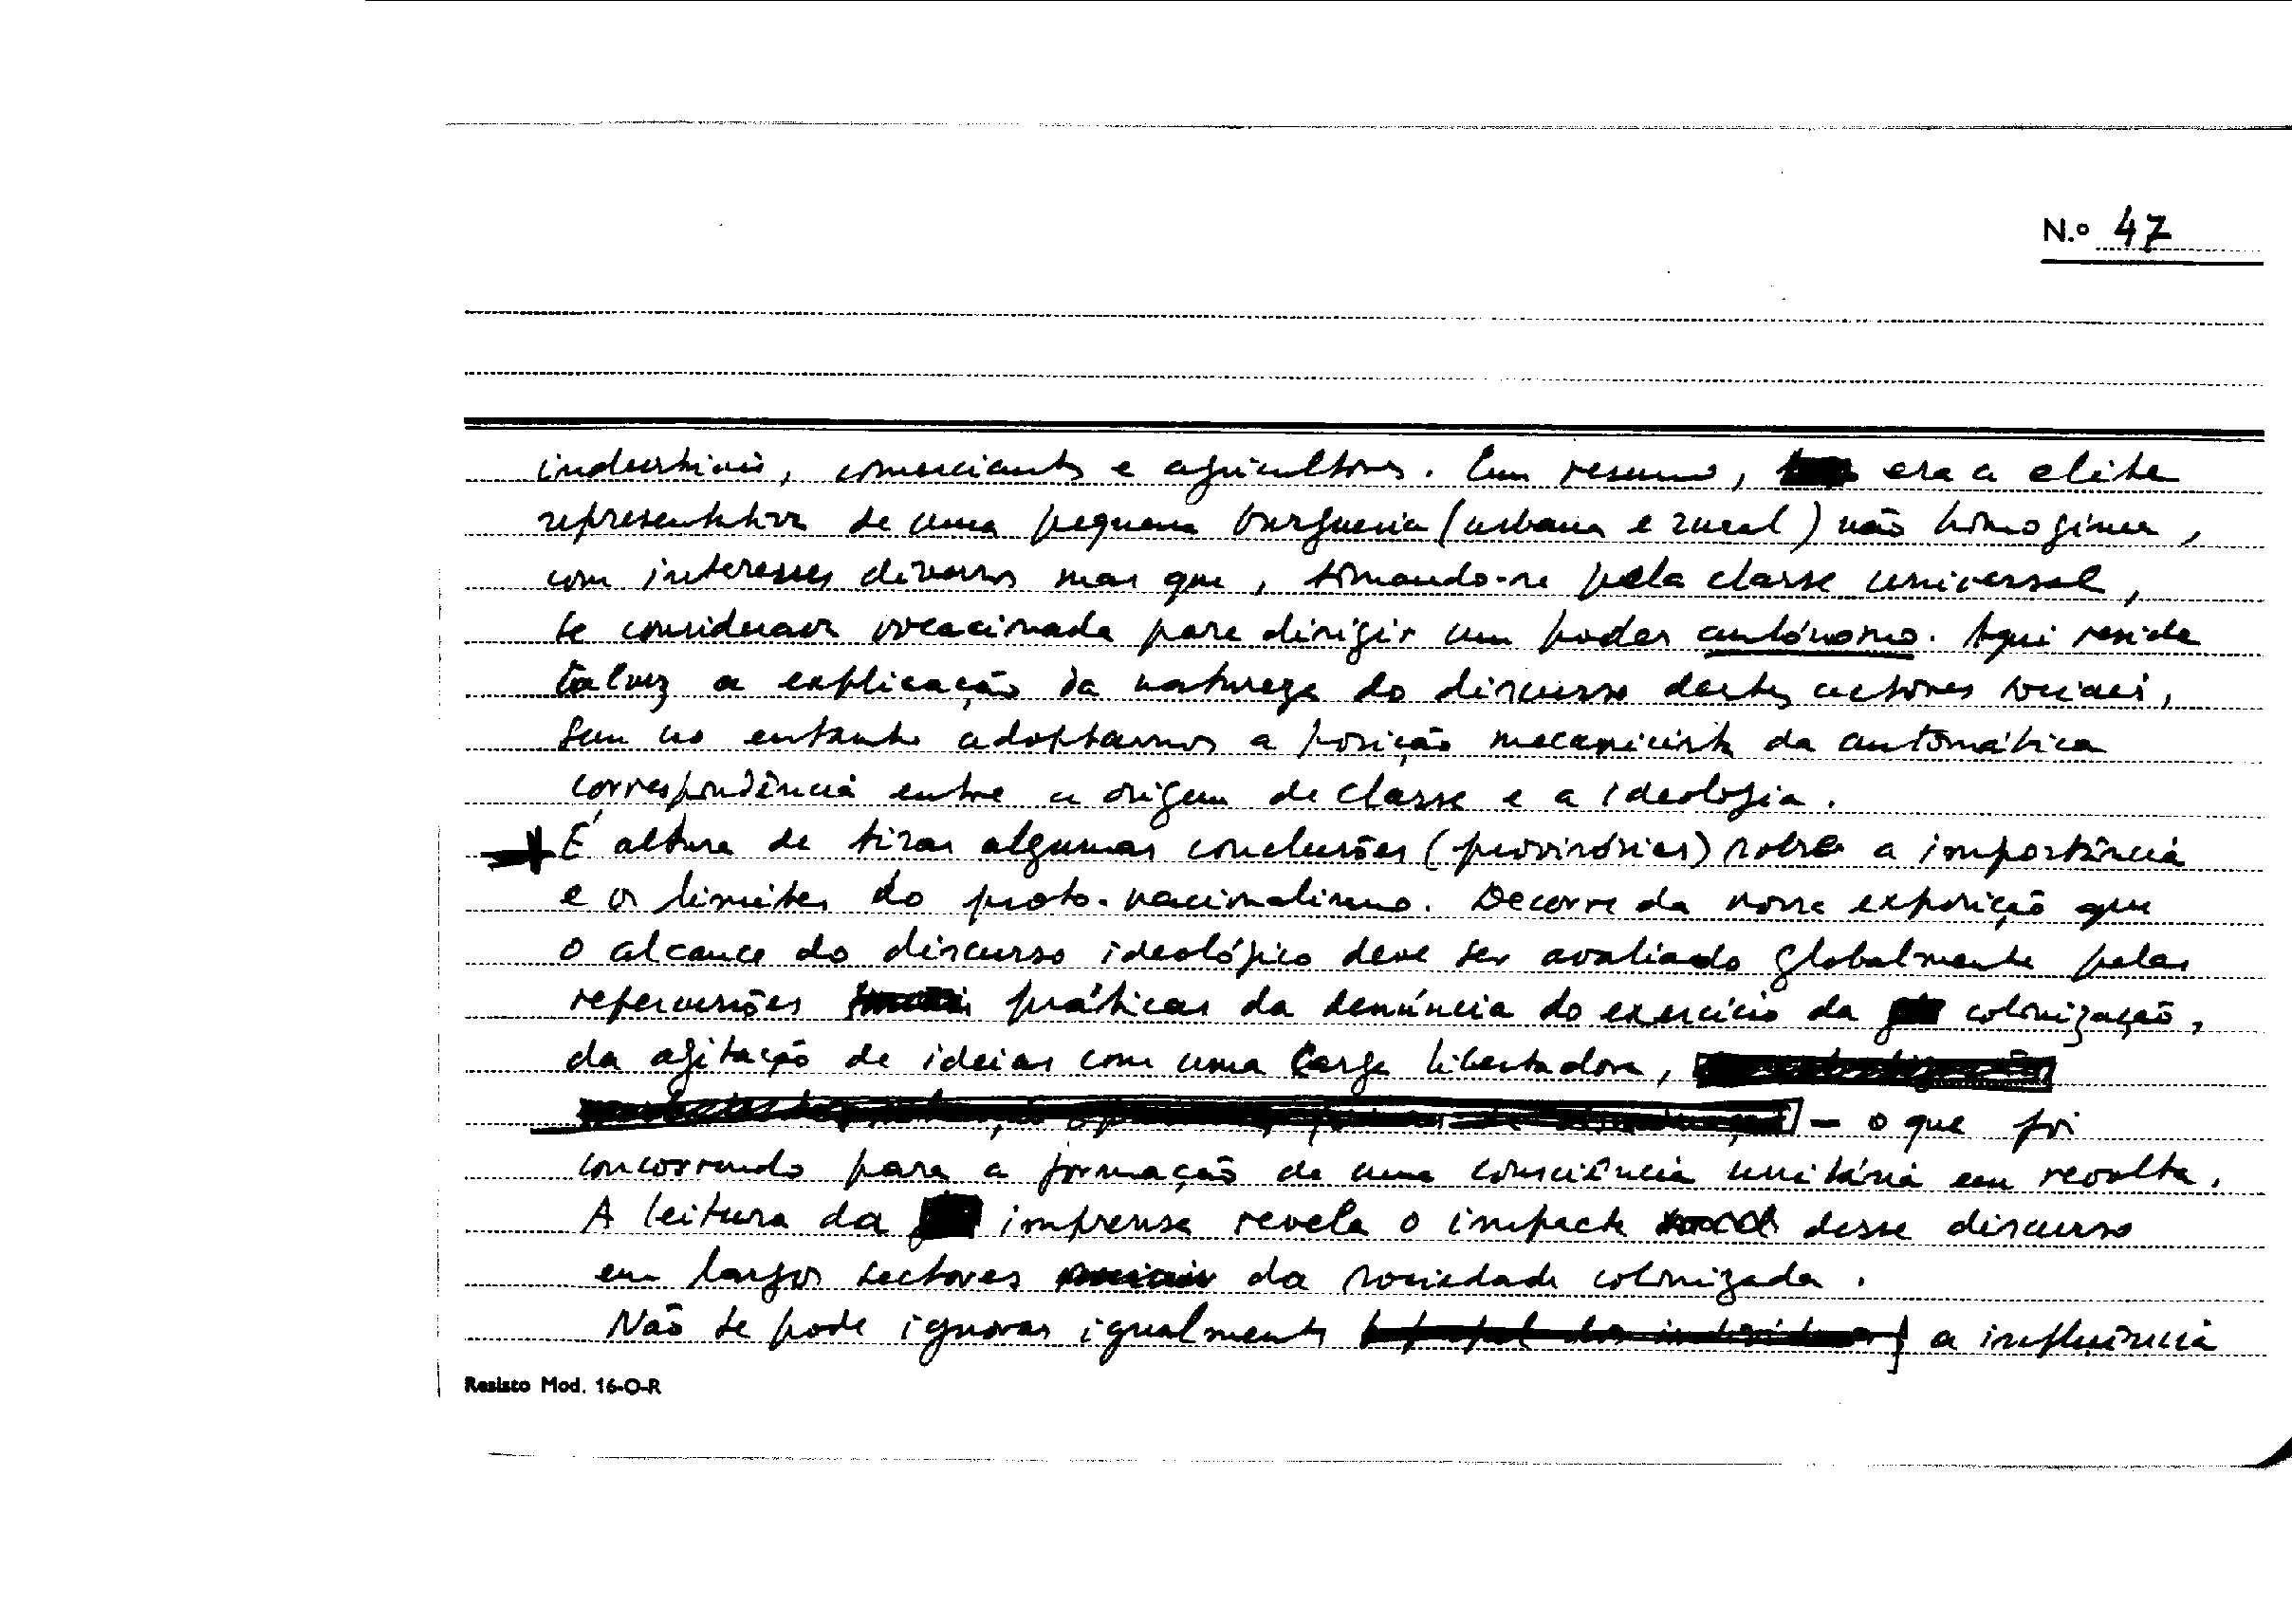 N.º 47
industriais, comerciantes e agricultores. Em resumo, era a elite
representativa de uma pequena burguesia (urbana e rural) não homogénea,
com interesses diversos mas que, tomando-se pela classe universal,
se considerava vocacionada para dirigir um poder autónomo. Aqui reside
talvez a explicação da natureza do discurso destes actores sociais,
sem no entanto adoptarmos a posição mecanicista da automática
correspondência entre a origem de classe e a ideologia.
É altura de tirar algumas conclusões (provisórias) sobre a importância
e os limites do proto-nacionalismo. Decorre da nossa exposição que
o alcance do discurso ideológico deve ser avaliado globalmente pelas
repercussões práticas da denúncia do exercício da colonização,
da agitação de ideias com uma carga libertadora,
– o que foi
concorrendo para a formação de uma consciência unitária em revolta.
A leitura da imprensa revela o impacto desse discurso
em largos sectores da sociedade colonizada.
Não se pode ignorar igualmente a influência
Resisto Mod. 16-O-R